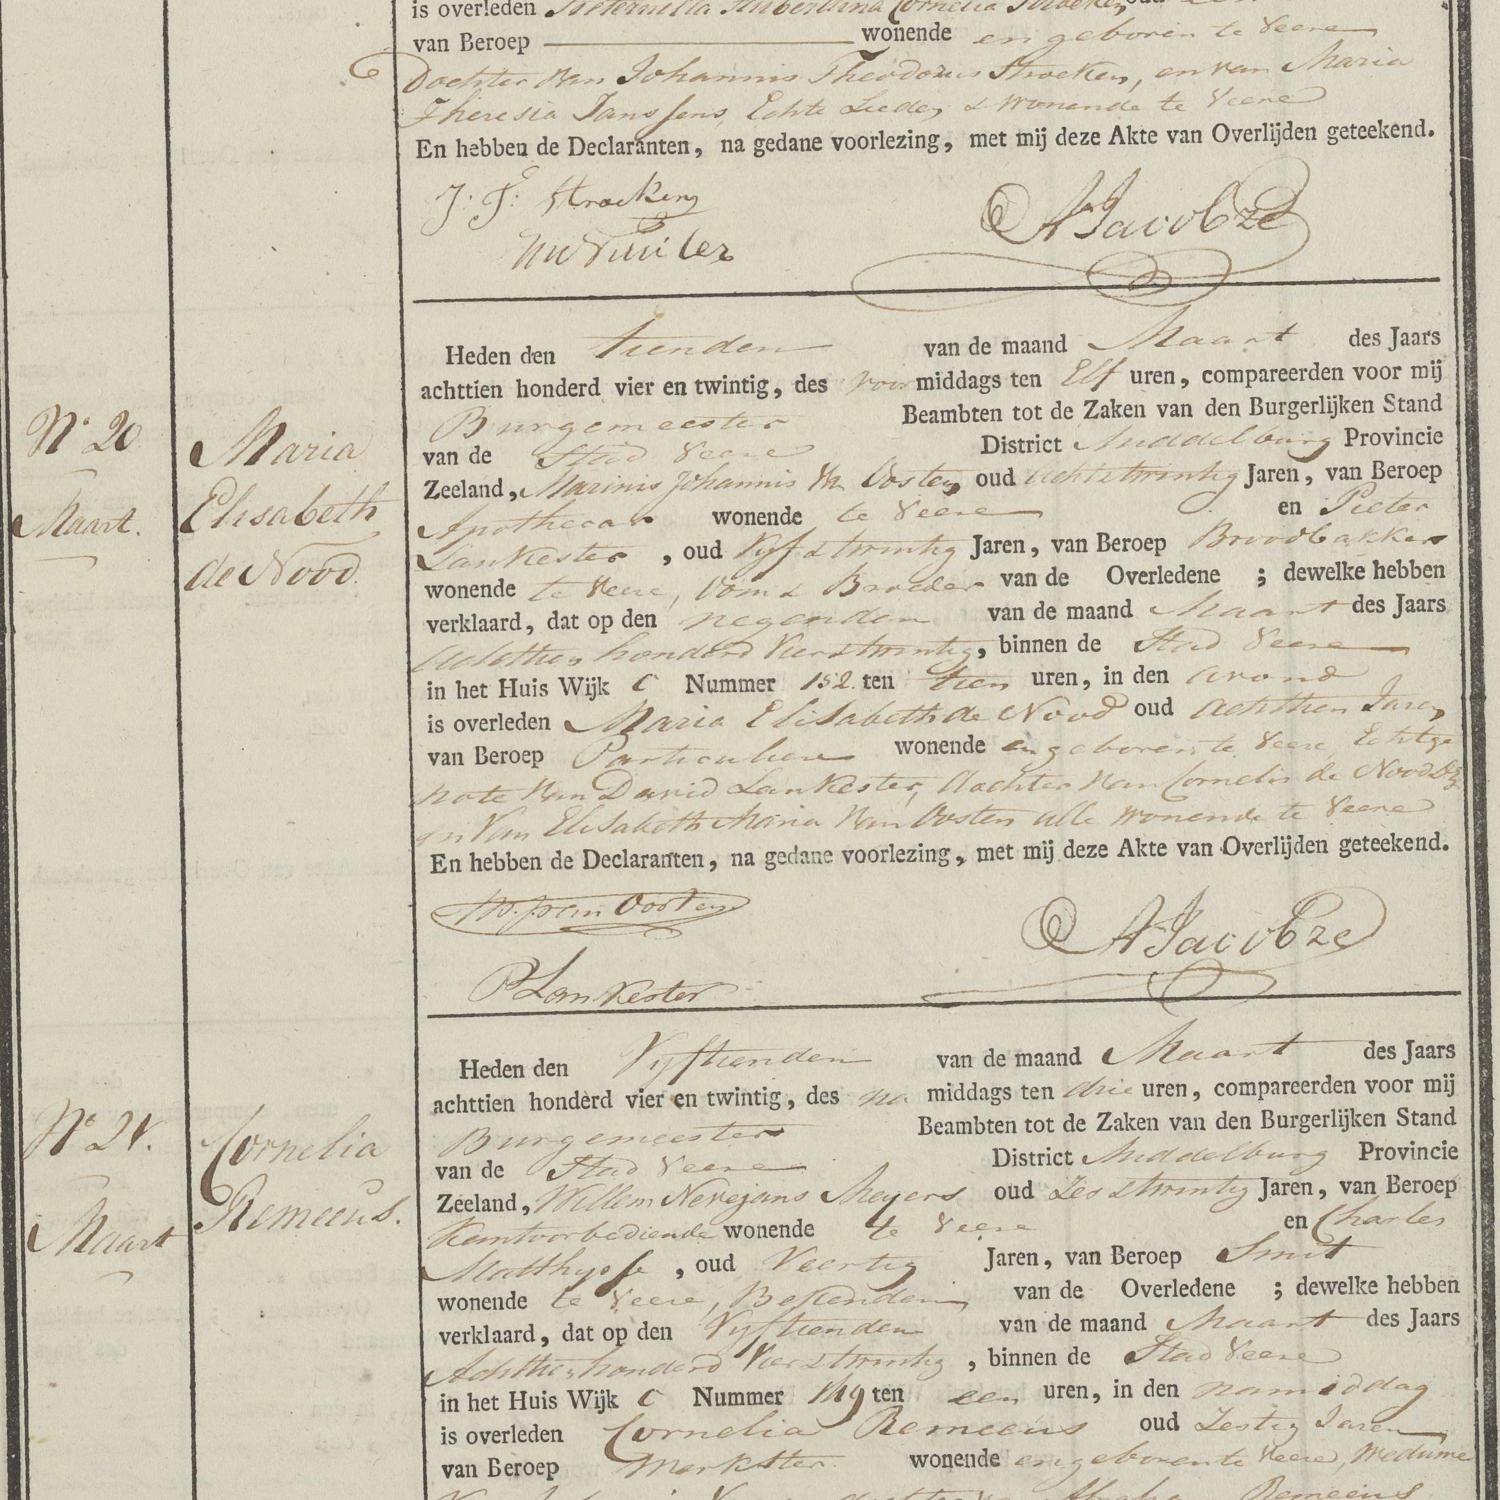 is overleden Pieternella Huberdina Cornelia Stroeken, oud een
van Beroep wonende en geboren te Veere
Dochter van Johannis Theodorus Stroeken, en van Maria
Theresia Janssens, Echte Lieden, & wonende te Veere
En hebben de Declaranten, na gedane voorlezing, met mij deze Akte van Overlijden geteekend.
J: F: Stroeken
AJacobze
Heden den tienden van de maand Maart des Jaars
achttien honderd vier en twintig, des voormiddags ten Elf uren, compareerden voor mij
Burgemeester Beambten tot de Zaken van den Burgerlijken Stand
van de Stad Veere District Middelburg Provincie
Zeeland, Marinis Johannis Vn Oosten, oud achtstwintig Jaren, van Beroep
Apothecar wonende te Veere en Pieter
Lankester, oud Vyf & twintig Jaren, van Beroep Broodbakker
wonende te Veere, Oom & Broeder van de Overledene ; dewelke hebben
verklaard, dat op den negenden van de maand Maart des Jaars
Achtthien honderd Vier & twintig, binnen de Stad Veere
in het Huis Wijk C Nummer 152 ten tien uren, in den avond
is overleden Maria Elisabeth de Nood oud Achtthien Jaren,
van Beroep Particuliere wonende en geboren te Veere Echtge
note van David Lankester, dochter van Cornelis de Nood Dz
en van Elisabeth Maria van Oosten alle wonende te Veere
En hebben de Declaranten, na gedane voorlezing, met mij deze Akte van Overlijden geteekend.
M. J. van Oosten
AJacobze
P Lankester
No 20
Maart.
Maria
Elisabeth
de Nood.
Heden den Vyftienden van de maand Maart des Jaars
achttien honderd vier en twintig, des na middags ten drie uren, compareerden voor mij
Burgemeester Beambten tot de Zaken van den Burgerlijken Stand
van de Stad Veere District Middelburg Provincie
Zeeland, Willem Nevejans Meyers oud Zes & twintig Jaren, van Beroep
Kantoorbediende wonende te Veere en Charles
Matthysse, oud Veertig Jaren, van Beroep Smit
wonende te Veere, Bekenden van de Overledene ; dewelke hebben
verklaard, dat op den Vyftienden van de maand Maart des Jaars
Achtthien honderd Vier & twintig, binnen de Stad Veere
in het Huis Wijk C Nummer 149 ten een uren, in den namiddag
is overleden Cornelia Remeeus oud Zestig Jaren
van Beroep Merkster wonende en geboren te Veere, Weduwe
dochter van Remeeus
No 21.
Maart
Cornelia
Remeeus.